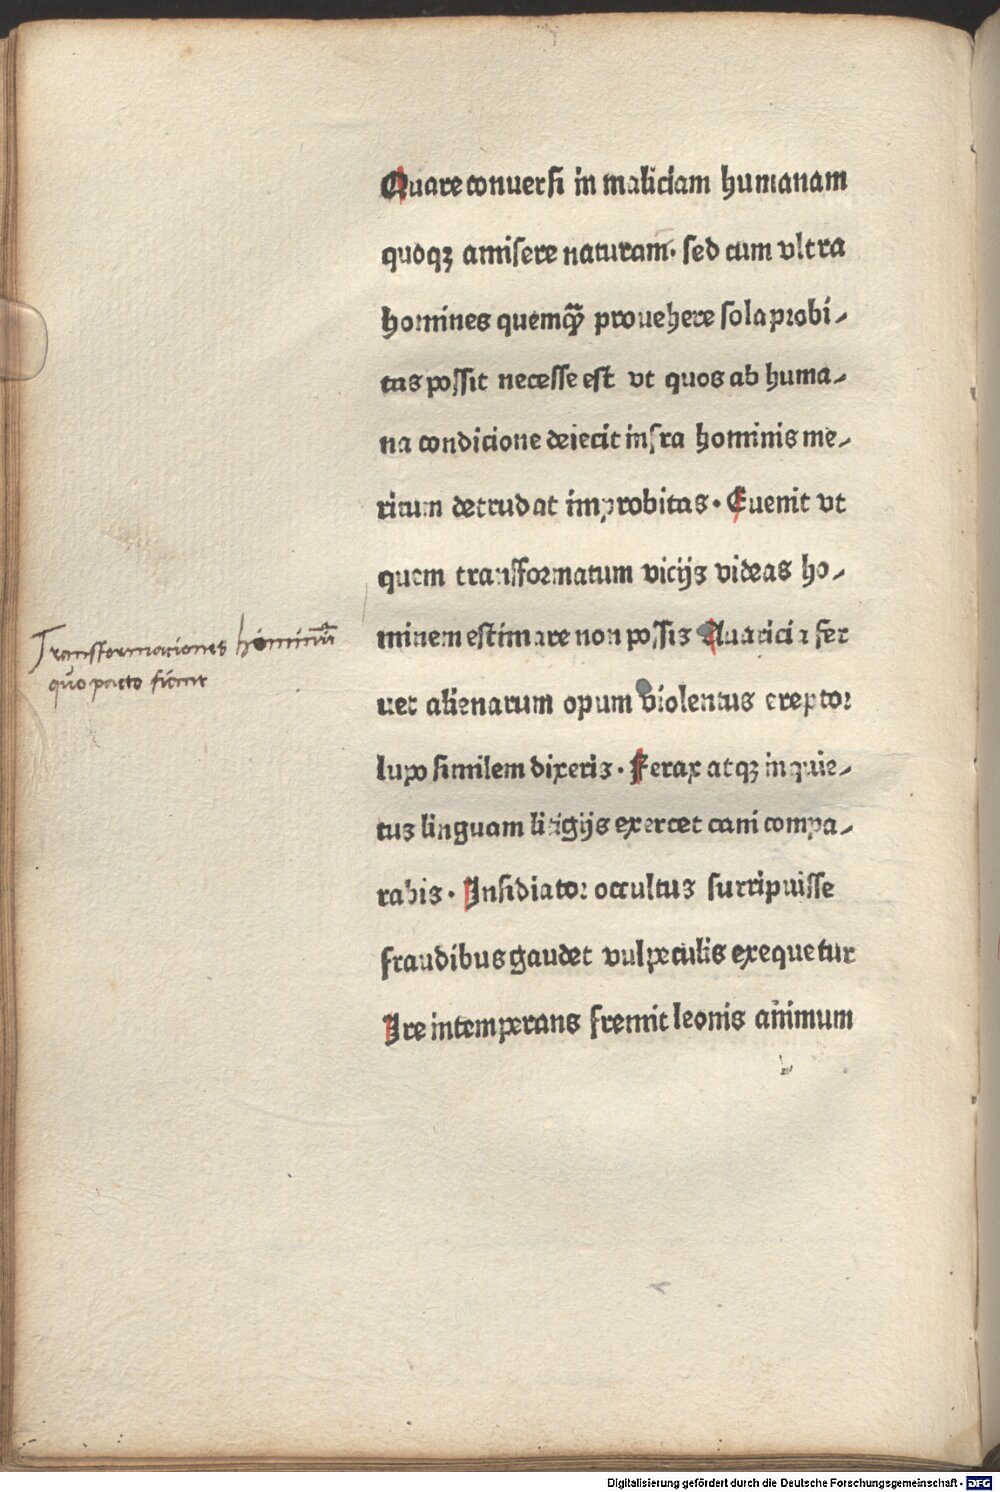 Quare conuersi in maliciam humanam
quoqꝫ amisere naturam· sed cum vltra
homines quemqꝫ̃ prouehere sola probi-
tas possit necesse est vt quos ab huma-
na condicione deiecit infra hominis me-
ritum detrudat improbitas· Euenit vt
quem transformatum vicijs videas ho-
Transformaciones hominũ
quo pacto fiunt
minem estimare non possis Auaricia fer
uet alienarum opum violentus ereptor
lupo similem dixeris· Ferax atqꝫ inquie-
tus linguam litigijs exercet cani compa-
rabis· Insidiator occultus surripuisse
fraudibus gaudet vulpeculis exequetur
Ire intemperans fremit leonis animum
Digitalisierung gefördert durch die Deutsche Forschungsgemeinschaft - DFG